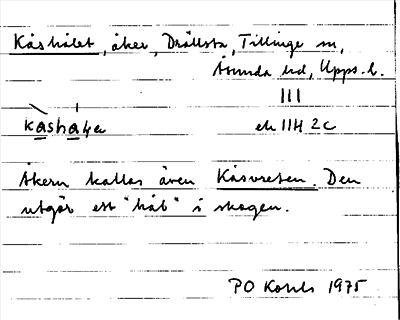 Kåshålet, åker, Drällsta, Tillinge sn,
Åsunda hd, Upps. l.
III
kashale
ek 11H 2c
Åkern kallas även Kåsvreten. Den
utgör ett "hål" i skogen.
PO Kohls 1975